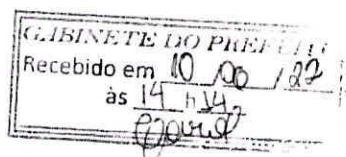 GABINETE DO PREF
Recebido em 10 / / 22
às 14 h 14